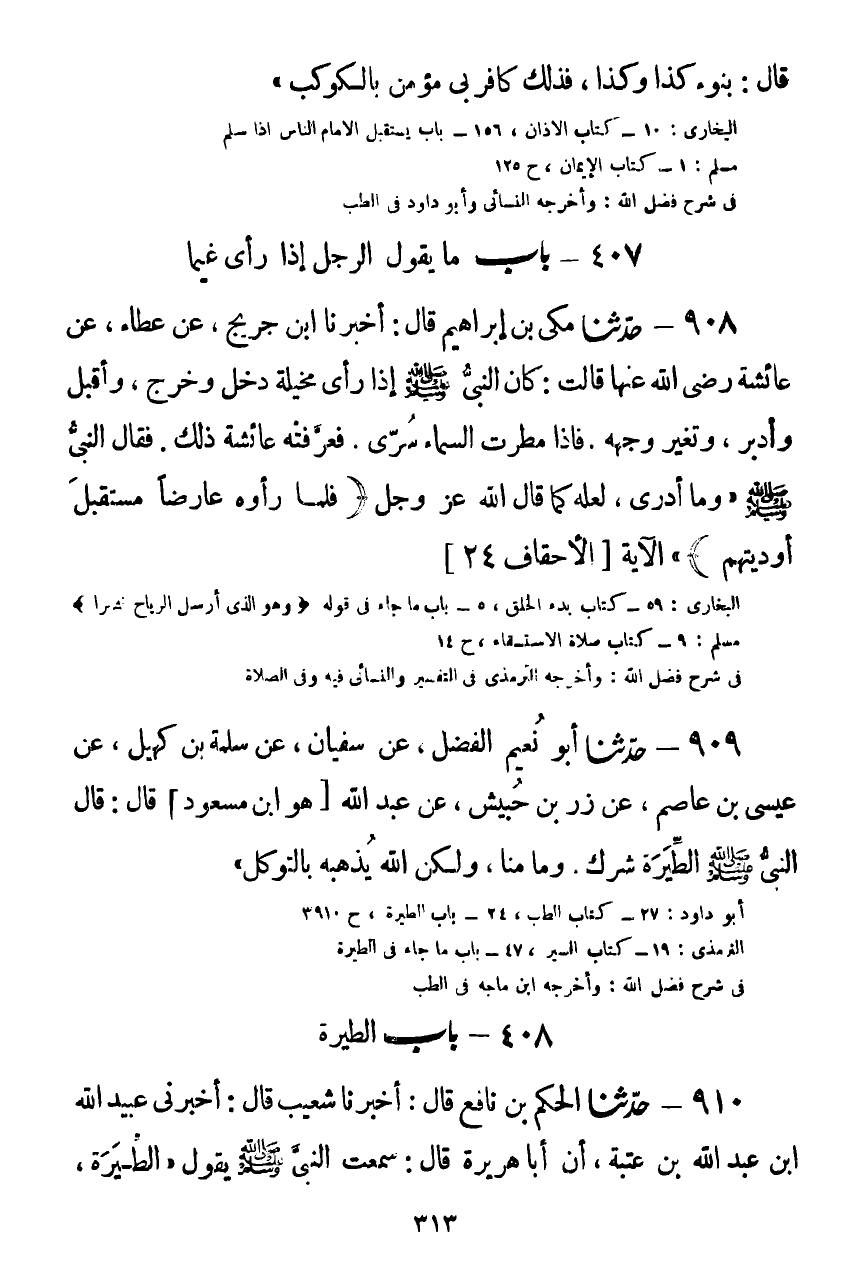 قال : بنوء كذا وكذا ، فذلك كافر بى مؤمن بالكوكب »
البخارى : ١٠ ــ كتاب الاذان ، ١٥٦ ــ باب يستقبل الامام الناس اذا سلم
مسلم : ١ ــ كتاب الإيمان ، ح ١٢٥
فى شرح فضل الله : وأخرجه النسائى وأبو داود فى الطب
٤٠٧ – باب ما يقول الرجل إذا رأى غيما
٩٠٨ – حدّثنا مكى بن إبراهيم قال : أخبرنا ابن جريج ، عن عطاء ، عن
عائشة رضى الله عنها قالت : كان النبىُّ ﷺ إذا رأى مخيلة دخل وخرج ، وأقبل
وأدبر ، وتغير وجهه . فاذا مطرت السماء سُرّى . فعرَّفتْه عائشة ذلك . فقال النبىُّ
ﷺ « وما أدرى ، لعله كما قال الله عز وجل ﴿ فلمـا رأوه عارضاً مستقبلَ
أوديتهم ﴾ » الآية [ الأحقاف ٢٤ ]
البخارى : ٥٩ ــ كتاب بدء الخلق ، ٥ ــ باب ما جاء فى قوله ﴿ وهو الذى أرسل الرياح نشرا ﴾
مسلم : ٩ ــ كتاب صلاة الاستسقاء ، ح ١٤
فى شرح فضل الله : وأخرجه الترمذى فى التفسير والنسائى فيه وفى الصلاة
٩٠٩ – حدّثنا أبو نُعيم الفضل ، عن سفيان ، عن سلمة بن كهيل ، عن
عيسى بن عاصم ، عن زر بن حُبيش ، عن عبد الله [ هو ابن مسعود ] قال : قال
النبىُّ ﷺ الطِّيَرَة شرك . وما منا ، ولكن الله يُذهبه بالتوكل»
أبو داود : ٢٧ ــ كتاب الطب ، ٢٤ ــ باب الطيرة ، ح ٣٩١٠
الترمذى : ١٩ ــ كتاب السير ، ٤٧ ــ باب ما جاء فى الطيرة
فى شرح فضل الله : وأخرجه ابن ماجه فى الطب
٤٠٨ – باب الطيرة
٩١٠ – حدّثنا الحكم بن نافع قال : أخبرنا شعيب قال : أخبرنى عبيد الله
ابن عبد الله بن عتبة ، أن أبا هريرة قال : سمعت النبىَّ ﷺ يقول « الطـيَرَة ،
٣١٣